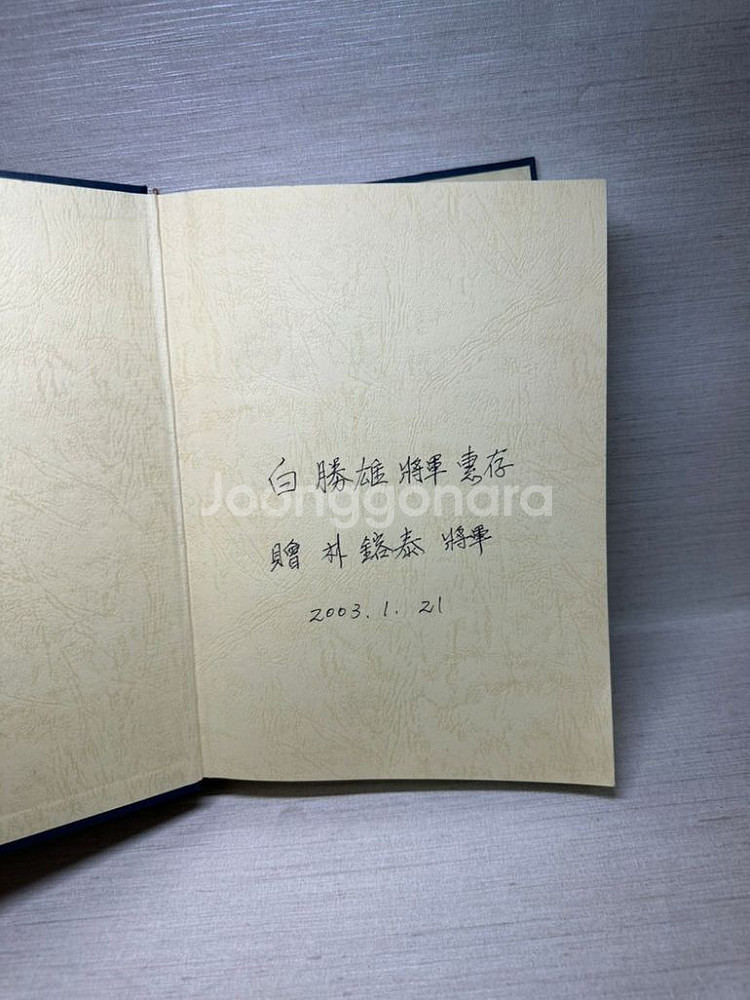 白勝雄 將軍 惠存
Joonggonara
贈 朴鎔泰 將軍
2003. 1. 21